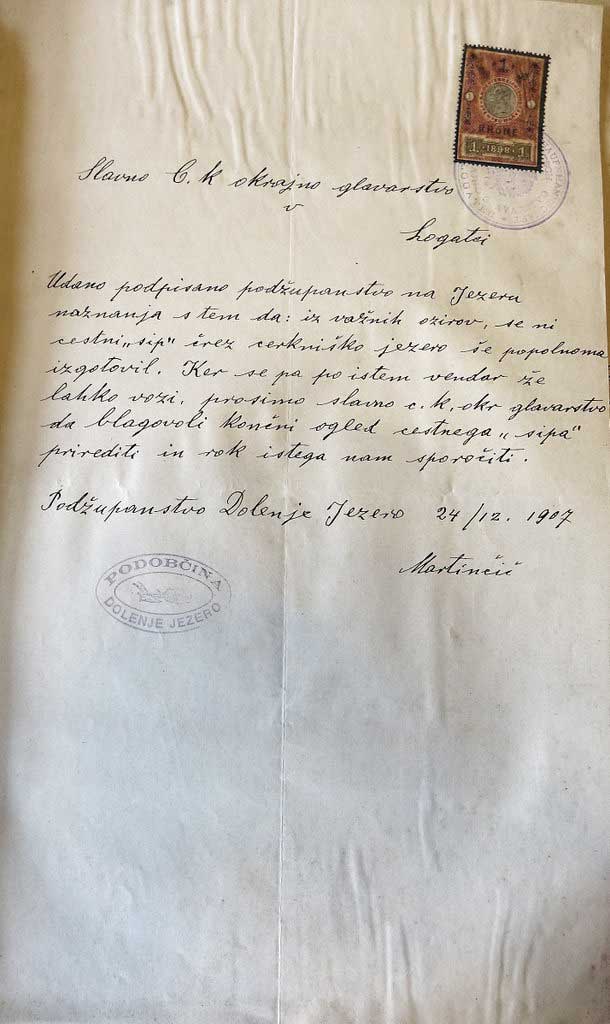 1
KRONE
1. 1898. 1
Slavno C. k okrajno glavarstvo
v
Logatci
Udano podpisano podžupanstvo na Jezeru
naznanja s tem da: iz važnih ozirov, se ni
cestni „sip" črez cerkniško jezero še popolnoma
izgotovil. Ker se pa po istem vendar že
lahko vozi, prosimo slavno c. k. okr glavarstvo
da blagovoli končni ogled cestnega „sipa"
prirediti in rok istega nam sporočiti.
Podžupanstvo Dolenje Jezero 24/12. 1907
Martinčič
PODOBČINA
DOLENJE JEZERO